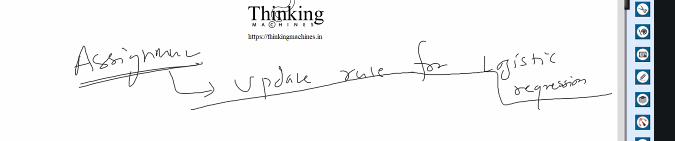 Thinking
MACHINES
https://thinkingmachines.in
Assignment
Update rule for Logistic
regression